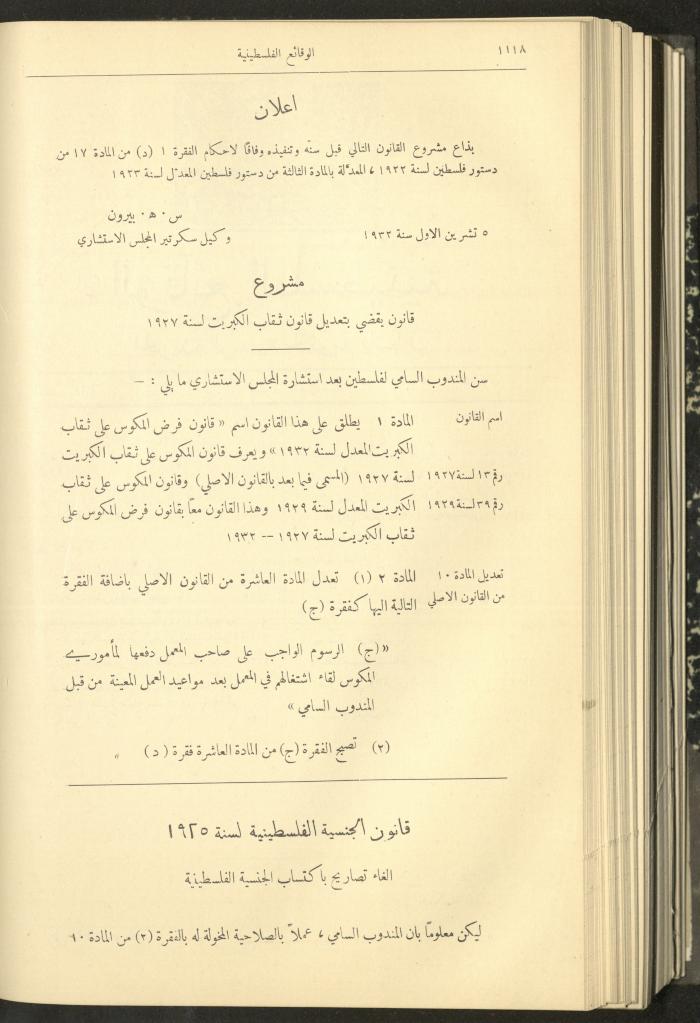 ١١١٨
الوقائع الفلسطينية
اعلان
يذاع مشروع القانون التالي قبل سنّه وتنفيذه وفاقًا لاحكام الفقرة ١ (د) من المادة ١٧ من
دستور فلسطين لسنة ١٩٢٢ ، المعدّلة بالمادة الثالثة من دستور فلسطين المعدّل لسنة ١٩٢٣
س٠ ه٠ بيرون
٥ تشرين الاول سنة ١٩٣٢
وكيل سكرتير المجلس الاستشاري
مشروع
قانون يقضي بتعديل قانون ثقاب الكبريت لسنة ١٩٢٧
سن المندوب السامي لفلسطين بعد استشارة المجلس الاستشاري ما يلي : —
اسم القانون
المادة ١ يطلق على هذا القانون اسم « قانون فرض المكوس على ثقاب
الكبريت المعدل لسنة ١٩٣٢ » ويعرف قانون المكوس على ثقاب الكبريت
رقم ١٣ لسنة ١٩٢٧
لسنة ١٩٢٧ (المسمى فيما بعد بالقانون الاصلي) وقانون المكوس على ثقاب
رقم ٣٩ لسنة ١٩٢٩
الكبريت المعدل لسنة ١٩٢٩ وهذا القانون معًا بقانون فرض المكوس على
ثقاب الكبريت لسنة ١٩٢٧ -- ١٩٣٢
تعديل المادة ١٠
من القانون الاصلي
المادة ٢ (١) تعدل المادة العاشرة من القانون الاصلي باضافة الفقرة
التالية اليها كفقرة (ج)
«(ج) الرسوم الواجب على صاحب المعمل دفعها لمأموري
المكوس لقاء اشتغالهم في المعمل بعد مواعيد العمل المعينة من قبل
المندوب السامي »
(٢) تصبح الفقرة (ج) من المادة العاشرة فقرة ( د ) »
قانون الجنسية الفلسطينية لسنة ١٩٢٥
الغاء تصاريح باكتساب الجنسية الفلسطينية
ليكن معلومًا بان المندوب السامي ، عملاً بالصلاحية المخولة له بالفقرة (٢) من المادة ١٠